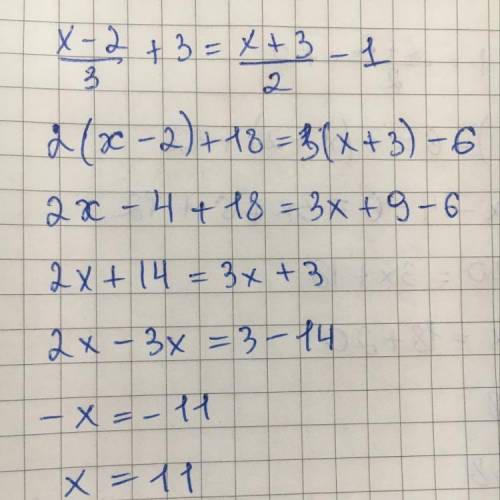 x-2/3 + 3 = x+3/2 - 1
2(x-2)+18=3(x+3)-6
2x-4+18=3x+9-6
2x+14=3x+3
2x-3x=3-14
-x=-11
x=11